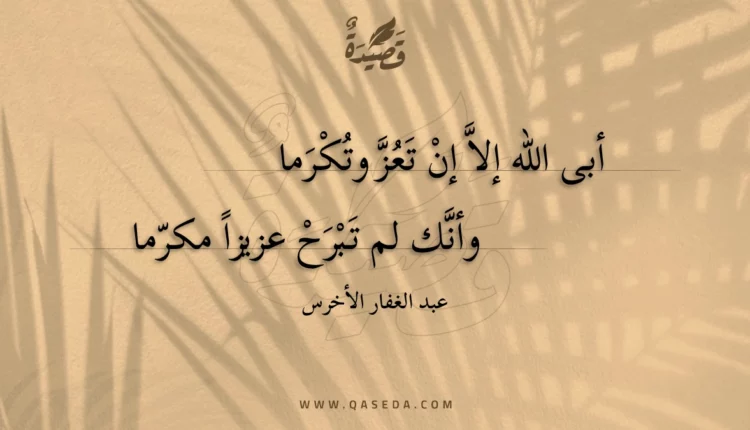 قَصِيْدَةٌ
أبى الله إلاَّ إنْ تَعُزَّ وتُكْرَما
وأنَّك لم تَبْرَحْ عزيزاً مكرّما
عبد الغفار الأخرس
WWW.QASEDA.COM